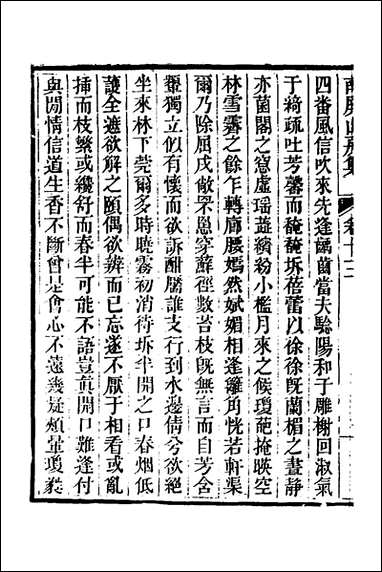 南屏山房集 卷十三
四番風信吹來先逢齲齒當夫驗陽和于雕榭回淑氣
于綺疏吐芳馨而馣馣坼蓓蕾以徐徐旣蘭楣之晝靜
亦菌閣之窓虛瑶蓰繽粉小檻月來之候瓊葩掩暎空
林雪霽之餘乍轉廊腰嫣然斌媚相逢籬角恍若軒渠
爾乃除屈戌敞罘罳穿蘚徑數苔枝旣無言而自芳含
顰獨立似有懷而欲訴酣靨誰支行到水邊倩兮欲絕
坐來林下莞爾多時曉霧初消待坼半開之口春烟低
護全遮欲解之頤偶欲辨而已忘遂不厭于相看或亂
揷而枝繁或纔舒而春半可能不語豈眞開口難逢付
與閒情信道生香不斷曾是會心不遠幾疑頰暈瓊瓠